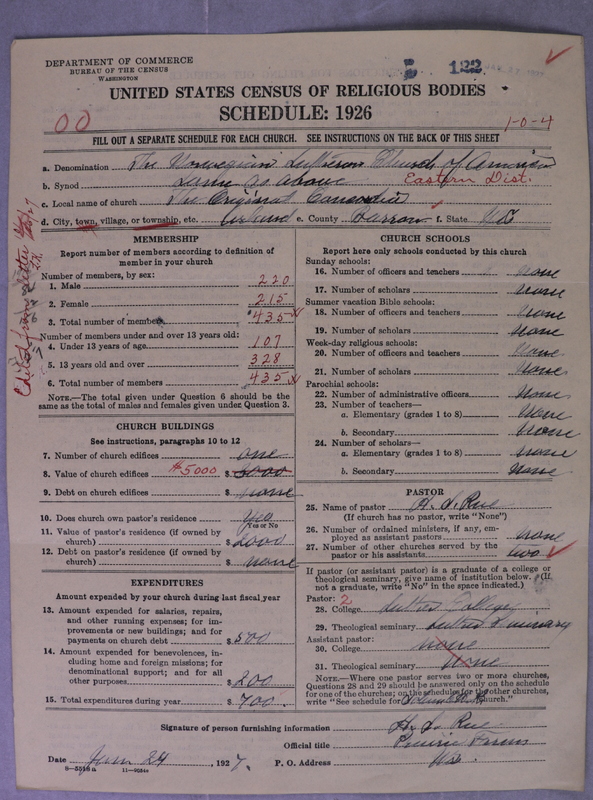 DEPARTMENT OF COMMERCE
BUREAU OF THE CENSUS
WASHINGTON
122
UNITED STATES CENSUS OF RELIGIOUS BODIES
SCHEDULE: 1926
00
1-0-4
FILL OUT A SEPARATE SCHEDULE FOR EACH CHURCH. SEE INSTRUCTIONS ON THE BACK OF THIS SHEET
a. Denomination The Norwegian Lutheran Church of America
b. Synod Same as above Eastern Dist.
c. Local name of church The Original Concordia
d. City, town, village, or township, etc. e. County f. State
MEMBERSHIP
Report number of members according to definition of
member in your church
Number of members, by sex:
1. Male 220
2. Female 215
3. Total number of members 435
Number of members under and over 13 years old:
4. Under 13 years of age 107
5. 13 years old and over 328
6. Total number of members 435
NOTE.—The total given under Question 6 should be the
same as the total of males and females given under Question 3.
CHURCH BUILDINGS
See instructions, paragraphs 10 to 12
7. Number of church edifices one
8. Value of church edifices $5000 $
9. Debt on church edifices $ none
10. Does church own pastor's residence Yes
(Yes or No
11. Value of pastor's residence (if owned by
church) $ 2000
12. Debt on pastor's residence (if owned by
church) $ none
EXPENDITURES
Amount expended by your church during last fiscal year
13. Amount expended for salaries, repairs,
and other running expenses; for im-
provements or new buildings; and for
payments on church debt $ 500
14. Amount expended for benevolences, in-
cluding home and foreign missions; for
denominational support; and for all
other purposes $ 200
15. Total expenditures during year $ 700.
CHURCH SCHOOLS
Report here only schools conducted by this church
Sunday schools:
16. Number of officers and teachers none
17. Number of scholars none
Summer vacation Bible schools:
18. Number of officers and teachers none
19. Number of scholars none
Week-day religious schools:
20. Number of officers and teachers none
21. Number of scholars none
Parochial schools:
22. Number of administrative officers none
23. Number of teachers—
a. Elementary (grades 1 to 8) none
b. Secondary none
24. Number of scholars—
a. Elementary (grades 1 to 8) none
b. Secondary none
PASTOR
25. Name of pastor
(If church has no pastor, write "None")
26. Number of ordained ministers, if any, em-
ployed as assistant pastors none
27. Number of other churches served by the
pastor or his assistants two
If pastor (or assistant pastor) is a graduate of a college or
theological seminary, give name of institution below. (If
not a graduate, write "No" in the space indicated.)
Pastor: 2
28. College Luther College
29. Theological seminary Luther Seminary
Assistant pastor:
30. College none
31. Theological seminary none
NOTE.—Where one pastor serves two or more churches,
Questions 28 and 29 should be answered only on the schedule
for one of the churches; on the schedules for the other churches,
write "See schedule for church."
Signature of person furnishing information
Official title
Date 24, 1927. P. O. Address Wis.
8-5518a 11-9034a